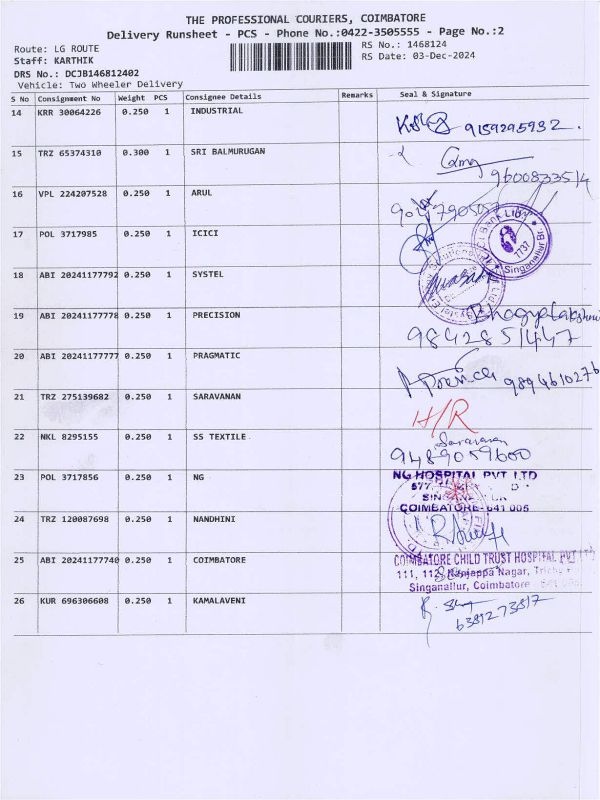 THE PROFESSIONAL COURIERS, COIMBATORE
Delivery Runsheet - PCS - Phone No.:0422-3505555 - Page No.:2
Route: LG ROUTE
RS No.: 1468124
Staff: KARTHIK
RS Date: 03-Dec-2024
DRS No.: DCJB146812402
Vehicle: Two Wheeler Delivery
S No Consignment No Weight PCS Consignee Details Remarks Seal & Signature
14 KRR 30064226 0.250 1 INDUSTRIAL
9159295932.
15 TRZ 65374310 0.300 1 SRI BALMURUGAN
9600833514
16 VPL 224207528 0.250 1 ARUL
17 POL 3717985 0.250 1 ICICI
1737
Singanallur Br.
18 ABI 20241177792 0.250 1 SYSTEL
19 ABI 20241177778 0.250 1 PRECISION
Bhagyalakshmi
9842851447
20 ABI 20241177777 0.250 1 PRAGMATIC
9894610276
21 TRZ 275139682 0.250 1 SARAVANAN
H/R
22 NKL 8295155 0.250 1 SS TEXTILE
Saravanan
9489059600
23 POL 3717856 0.250 1 NG
NG HOSPITAL PVT LTD
577,
COIMBATORE- 641 005
24 TRZ 120087698 0.250 1 NANDHINI
25 ABI 20241177740 0.250 1 COIMBATORE
COIMBATORE CHILD TRUST HOSPITAL PVT LTD
111, 112, Nanjappa Nagar,
Singanallur, Coimbatore
26 KUR 696306608 0.250 1 KAMALAVENI
6381273817